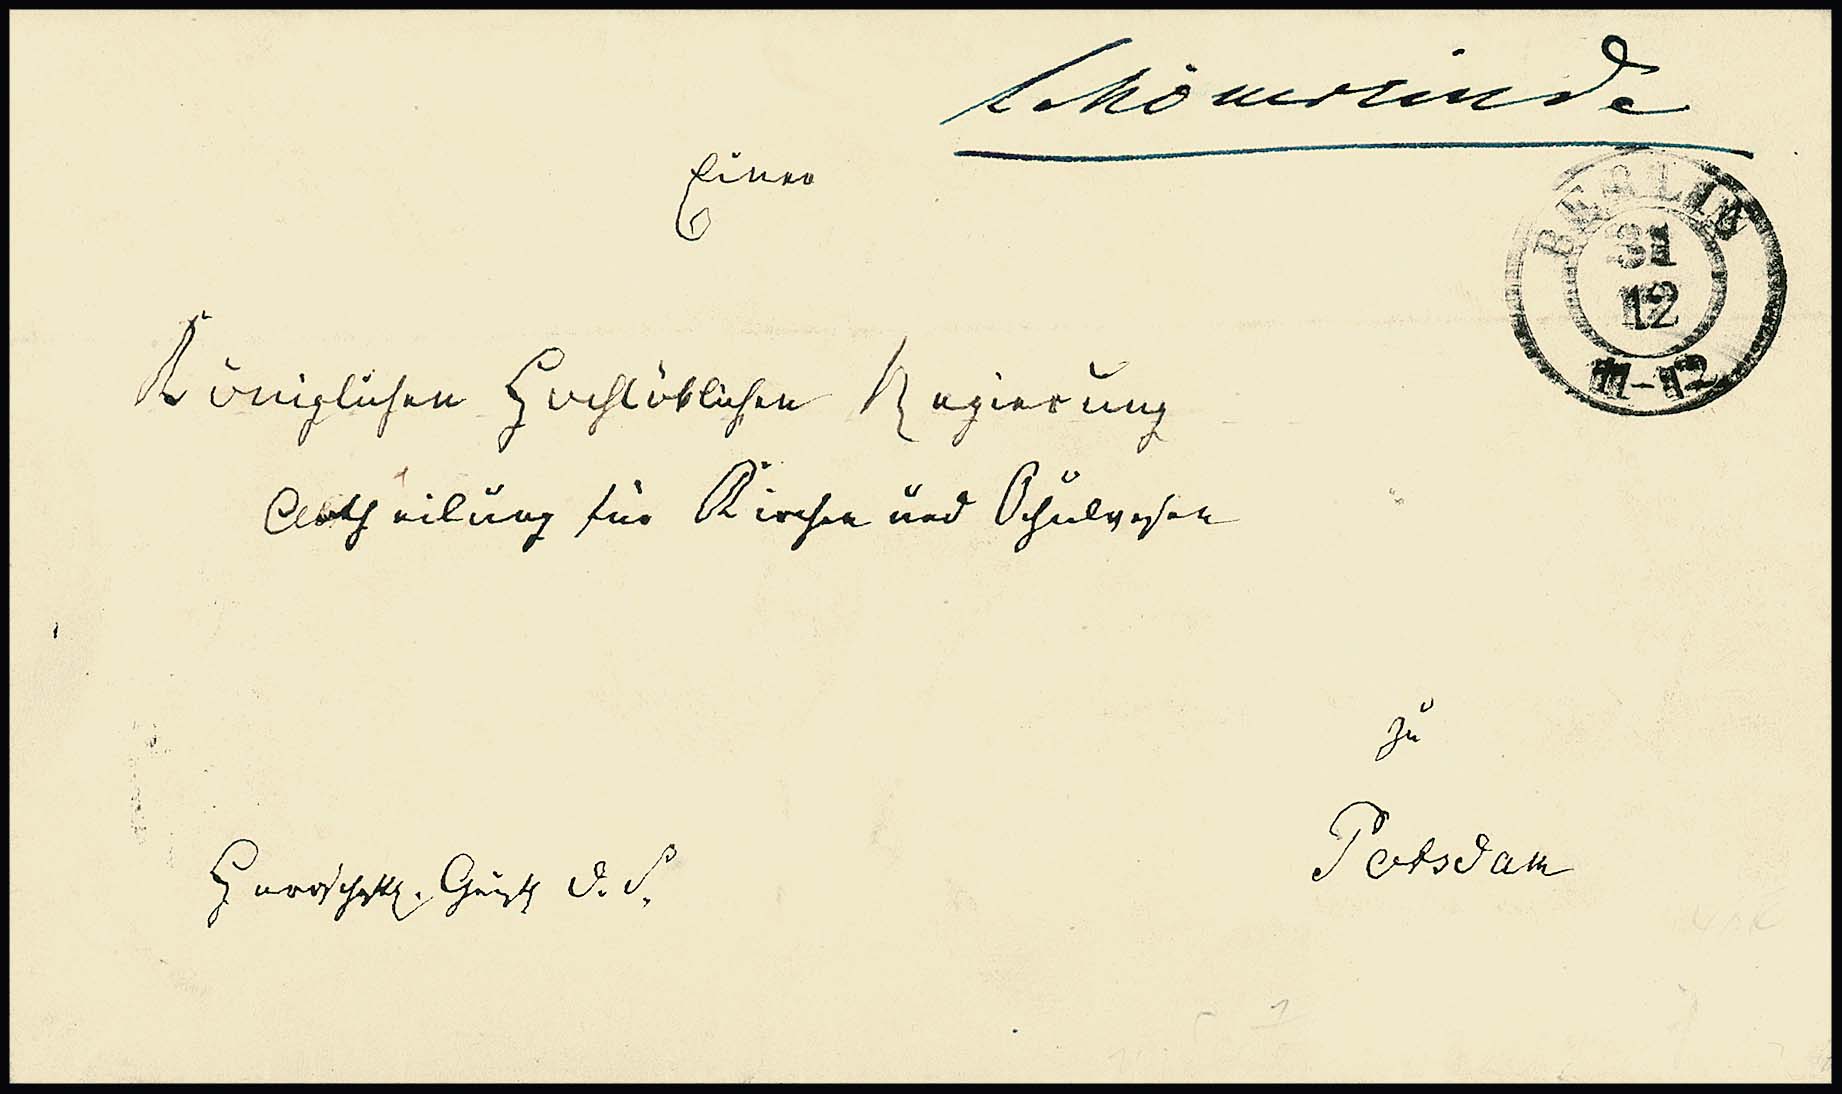 Schönerlinde
BERLIN
31
12
11-12
Einer
Königlichen Hochlöblichen Regierung
Abtheilung für Kirchen und Schulwesen
zu
Potsdam
Herrschaftl. d. S.